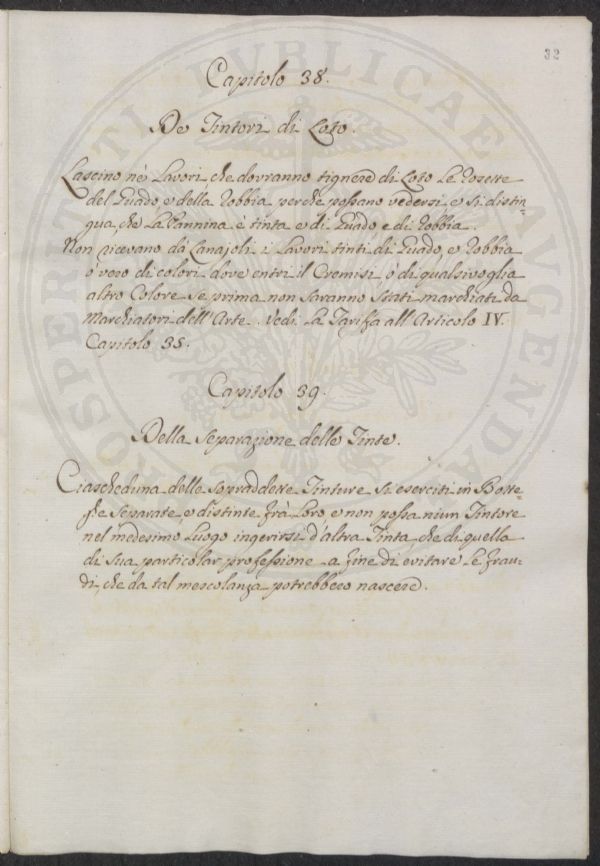 32
Capitolo 38.
De Tintori di Loto.
Lascino nei Lavori che dovranno tignere di Loto Le Rosette
del Guado, e della Robbia perche possano vedersi, e si distin=
gua, che La Pannina è tinta e di Guado e di Robbia.
Non ricevano da Lanajoli i Lavori tinti di Guado, e Robbia
ò vero di colori dove entri il Cremisi, ò di qualsivoglia
altro Colore se prima non saranno stati marchiati da
Marchiatori dell'Arte. Vedi La Tariffa all'Articolo IV.
Capitolo 35.
Capitolo 39.
Della Separazione delle Tinte.
Ciascheduna delle sopraddette Tinture si eserciti in Botte
ghe Separate, e distinte frà Loro e non possa niun Tintore
nel medesimo Luogo ingerirsi d'altra Tinta che di quella
di Sua particolar professione a fine di evitare Le frau=
di, che da tal mescolanza potrebbero nascere.
PROSPERITATI PVBLICAE AVGENDAE